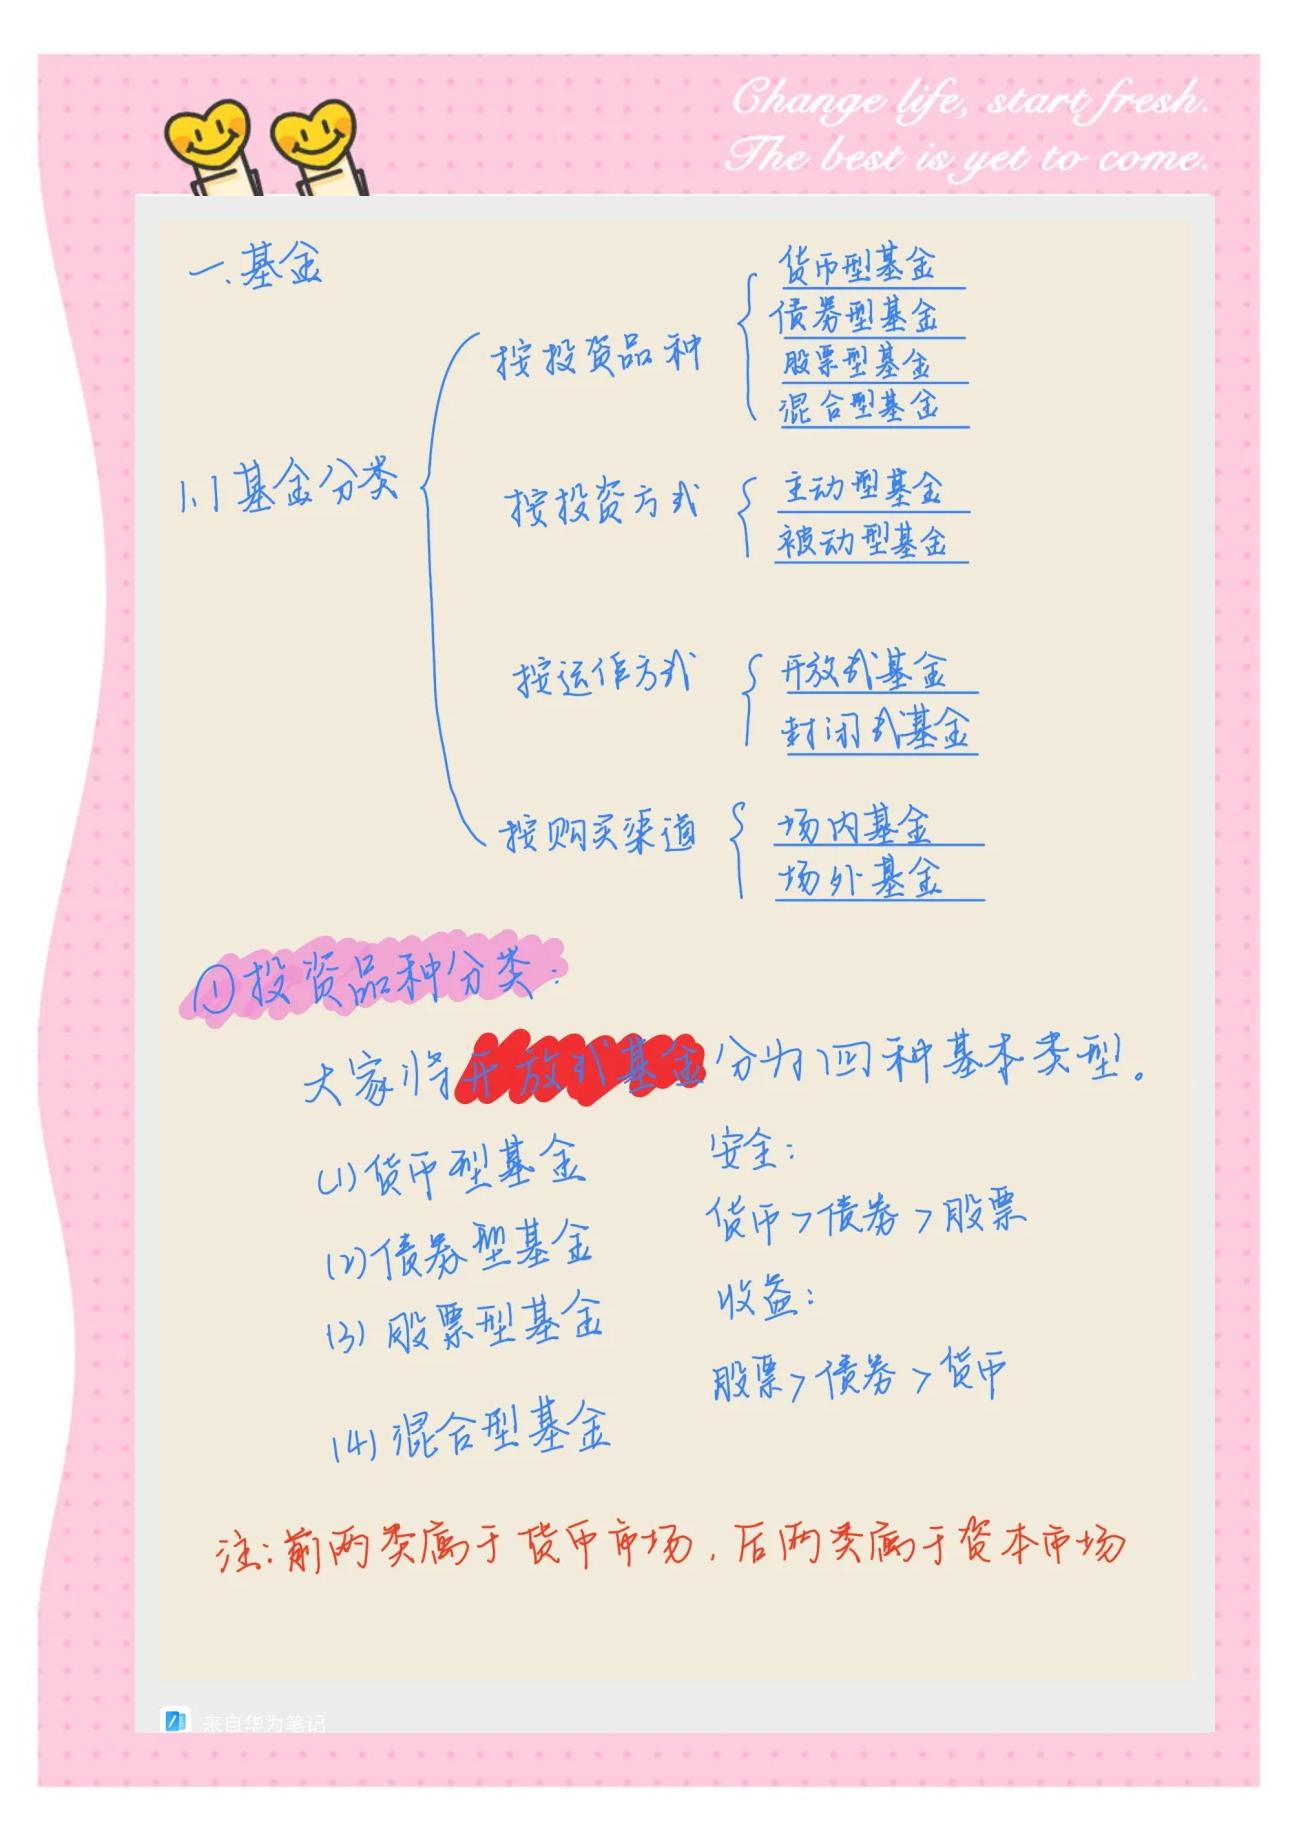 Change life, start fresh.
The best is yet to come.
一.基金
1.1基金分类
按投资品种
货币型基金
债券型基金
股票型基金
混合型基金
按投资方式
主动型基金
被动型基金
按运作方式
开放式基金
封闭式基金
按购买渠道
场内基金
场外基金
①投资品种分类:
大家将开放式基金分为四种基本类型。
(1)货币型基金
(2)债券型基金
(3)股票型基金
(4)混合型基金
安全:
货币>债券>股票
收益:
股票>债券>货币
注:前两类属于货币市场,后两类属于资本市场
来自华为笔记